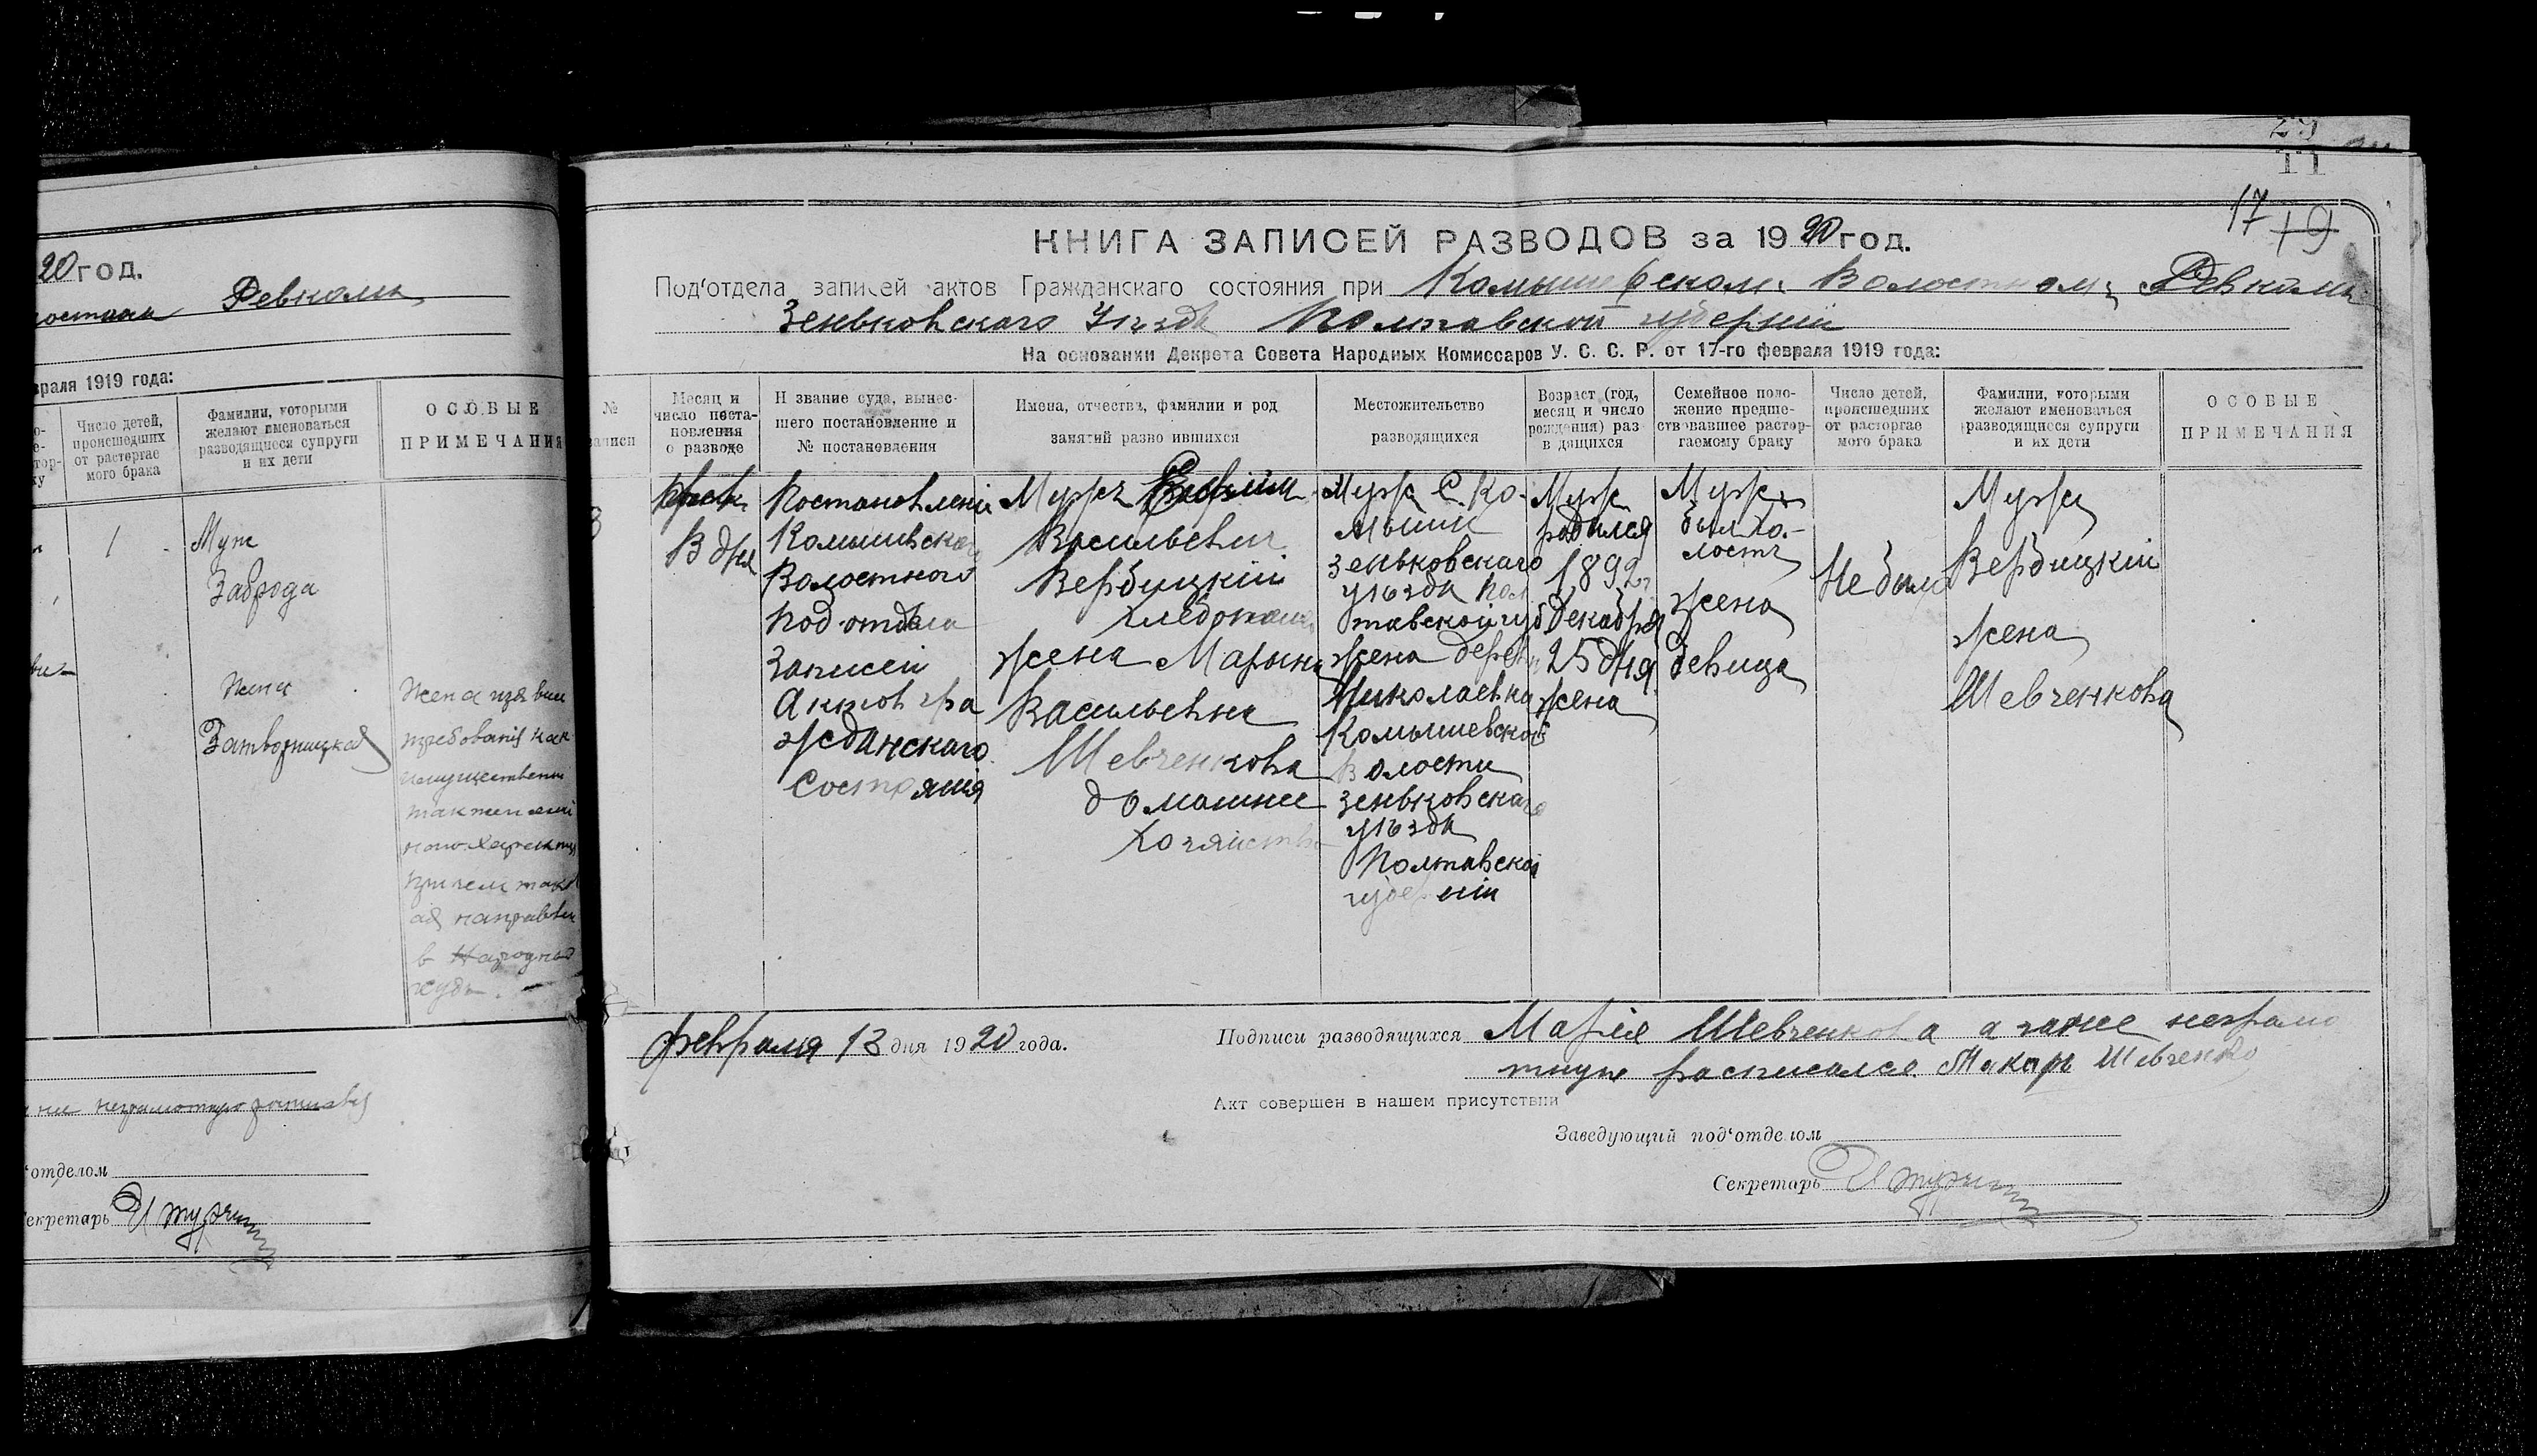 20 год.
Ревкомъ
враля 1919 года:
Число детей, происшедших от расторгае мого брака
Фамилии, которыми желают именоваться разводящиеся супруги и их дети
ОСОБЫЕ ПРИМЕЧАНИЯ
1
Муж
Заброда
Жена
Затворницкая
Жена
в Народный
судъ.
отделом
екретарь
17 19
КНИГА ЗАПИСЕЙ РАЗВОДОВ за 1920 год.
Под'отдела записей актов Гражданскаго состояния при Комышевскомъ Волостномъ Ревкомъ
Зеньковскаго Уѣзда Полтавской губерніи
На основании Декрета Совета Народных Комиссаров У. С. С. Р. от 17-го февраля 1919 года:
№ записи
Месяц и число поста-новления о разводе
Н звание суда, вынес-шего постановление и № постановления
Имена, отчества, фамилии и род занятий разво ившихся
Местожительство разводящихся
Возраст (год, месяц и число рождения) раз в дящихся
Семейное поло-жение предше-ствовавшее растор-гаемому браку
Число детей, происшедших от расторгае мого брака
Фамилии, которыми желают именоваться разводящиеся супруги и их дети
ОСОБЫЕ ПРИМЕЧАНИЯ
3
Постановленіе
Комышевскаго
Волостного
под отдѣла
Записей
Актовъ гра
жданскаго
состояния
Мужъ
Васильевич
Вербицкій
хлебопашец
жена Марына
Васильевна
Шевченкова
домашнее
хозяйство
Муж С. Ко-
мыши
Зеньковскаго
уѣзда Пол
тавской губ
жена дерев
Николаевка
Комышевской
волости
Зеньковскаго
уѣзда
Полтавской
губерніи
Муж
родился
1892 г
Декабря
25 дня
жена
Мужъ
был хо-
лостъ
жена
девица
Не было
Мужъ
Вербицкій
жена
Шевченкова
февраля 13 дня 1920 года.
Подписи разводящихся Марія Шевченкова а за нее неграмо
тную расписался Макаръ Шевченко
Акт совершен в нашем присутствии
Заведующий под'отделом
Секретарь